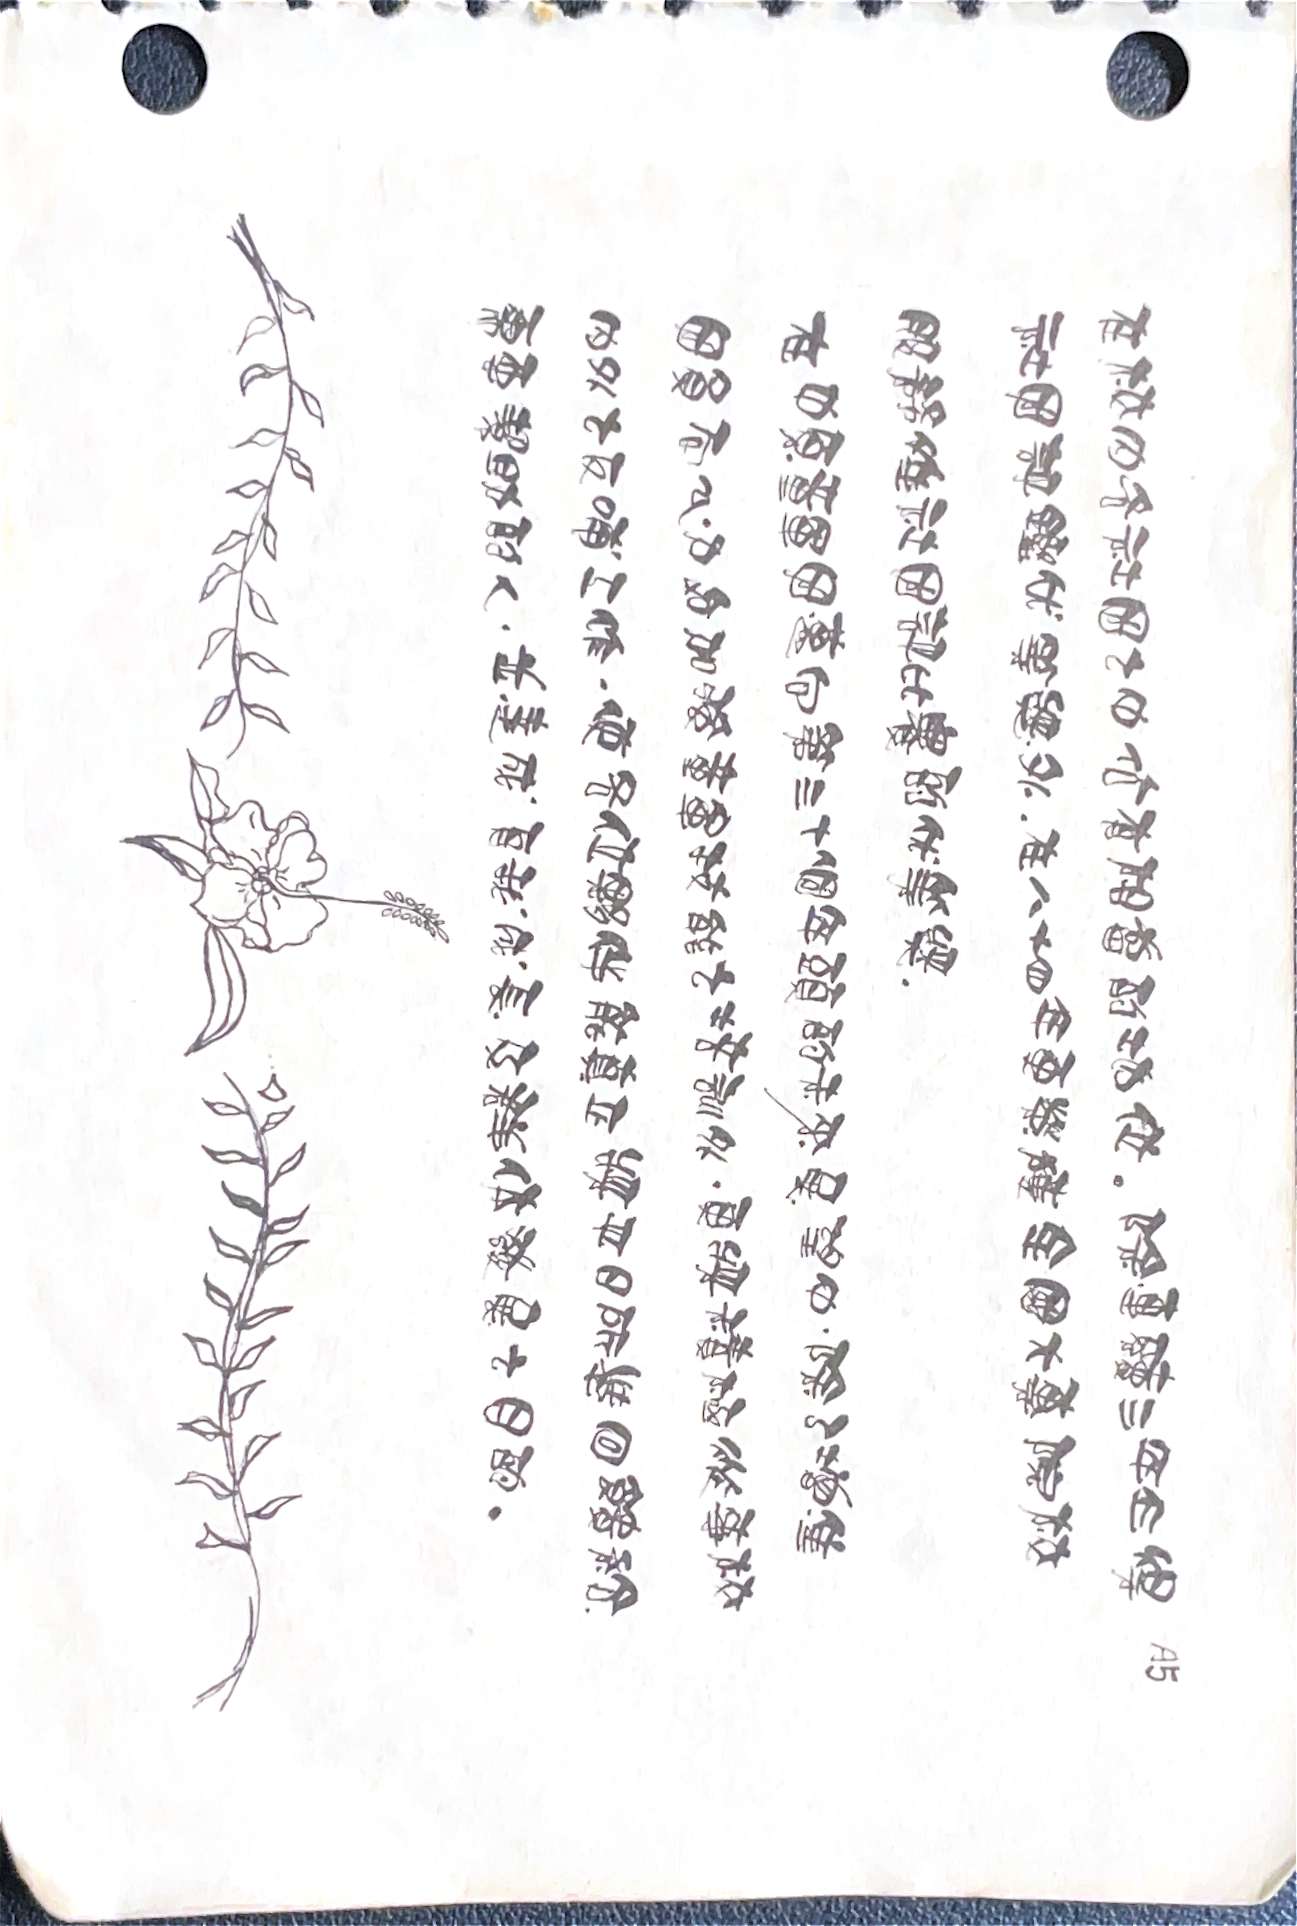 在校內各社團之中佔有相當的地位。除連續三年年得 A5
社團評鑑優等獎外.在八十四年更榮獲全國大專院校
服務性社團評比賽的優等獎.
在中原童軍團邁向第三十個年頭的未來展望中.除了增進
團員向心力與加強童軍技能之培訓外.更將積極從事校
內外之反哺工作.使各位夥伴能真正將平日所學回饋給
需要幫助的人.並達成自我成長及群体發展之目的。